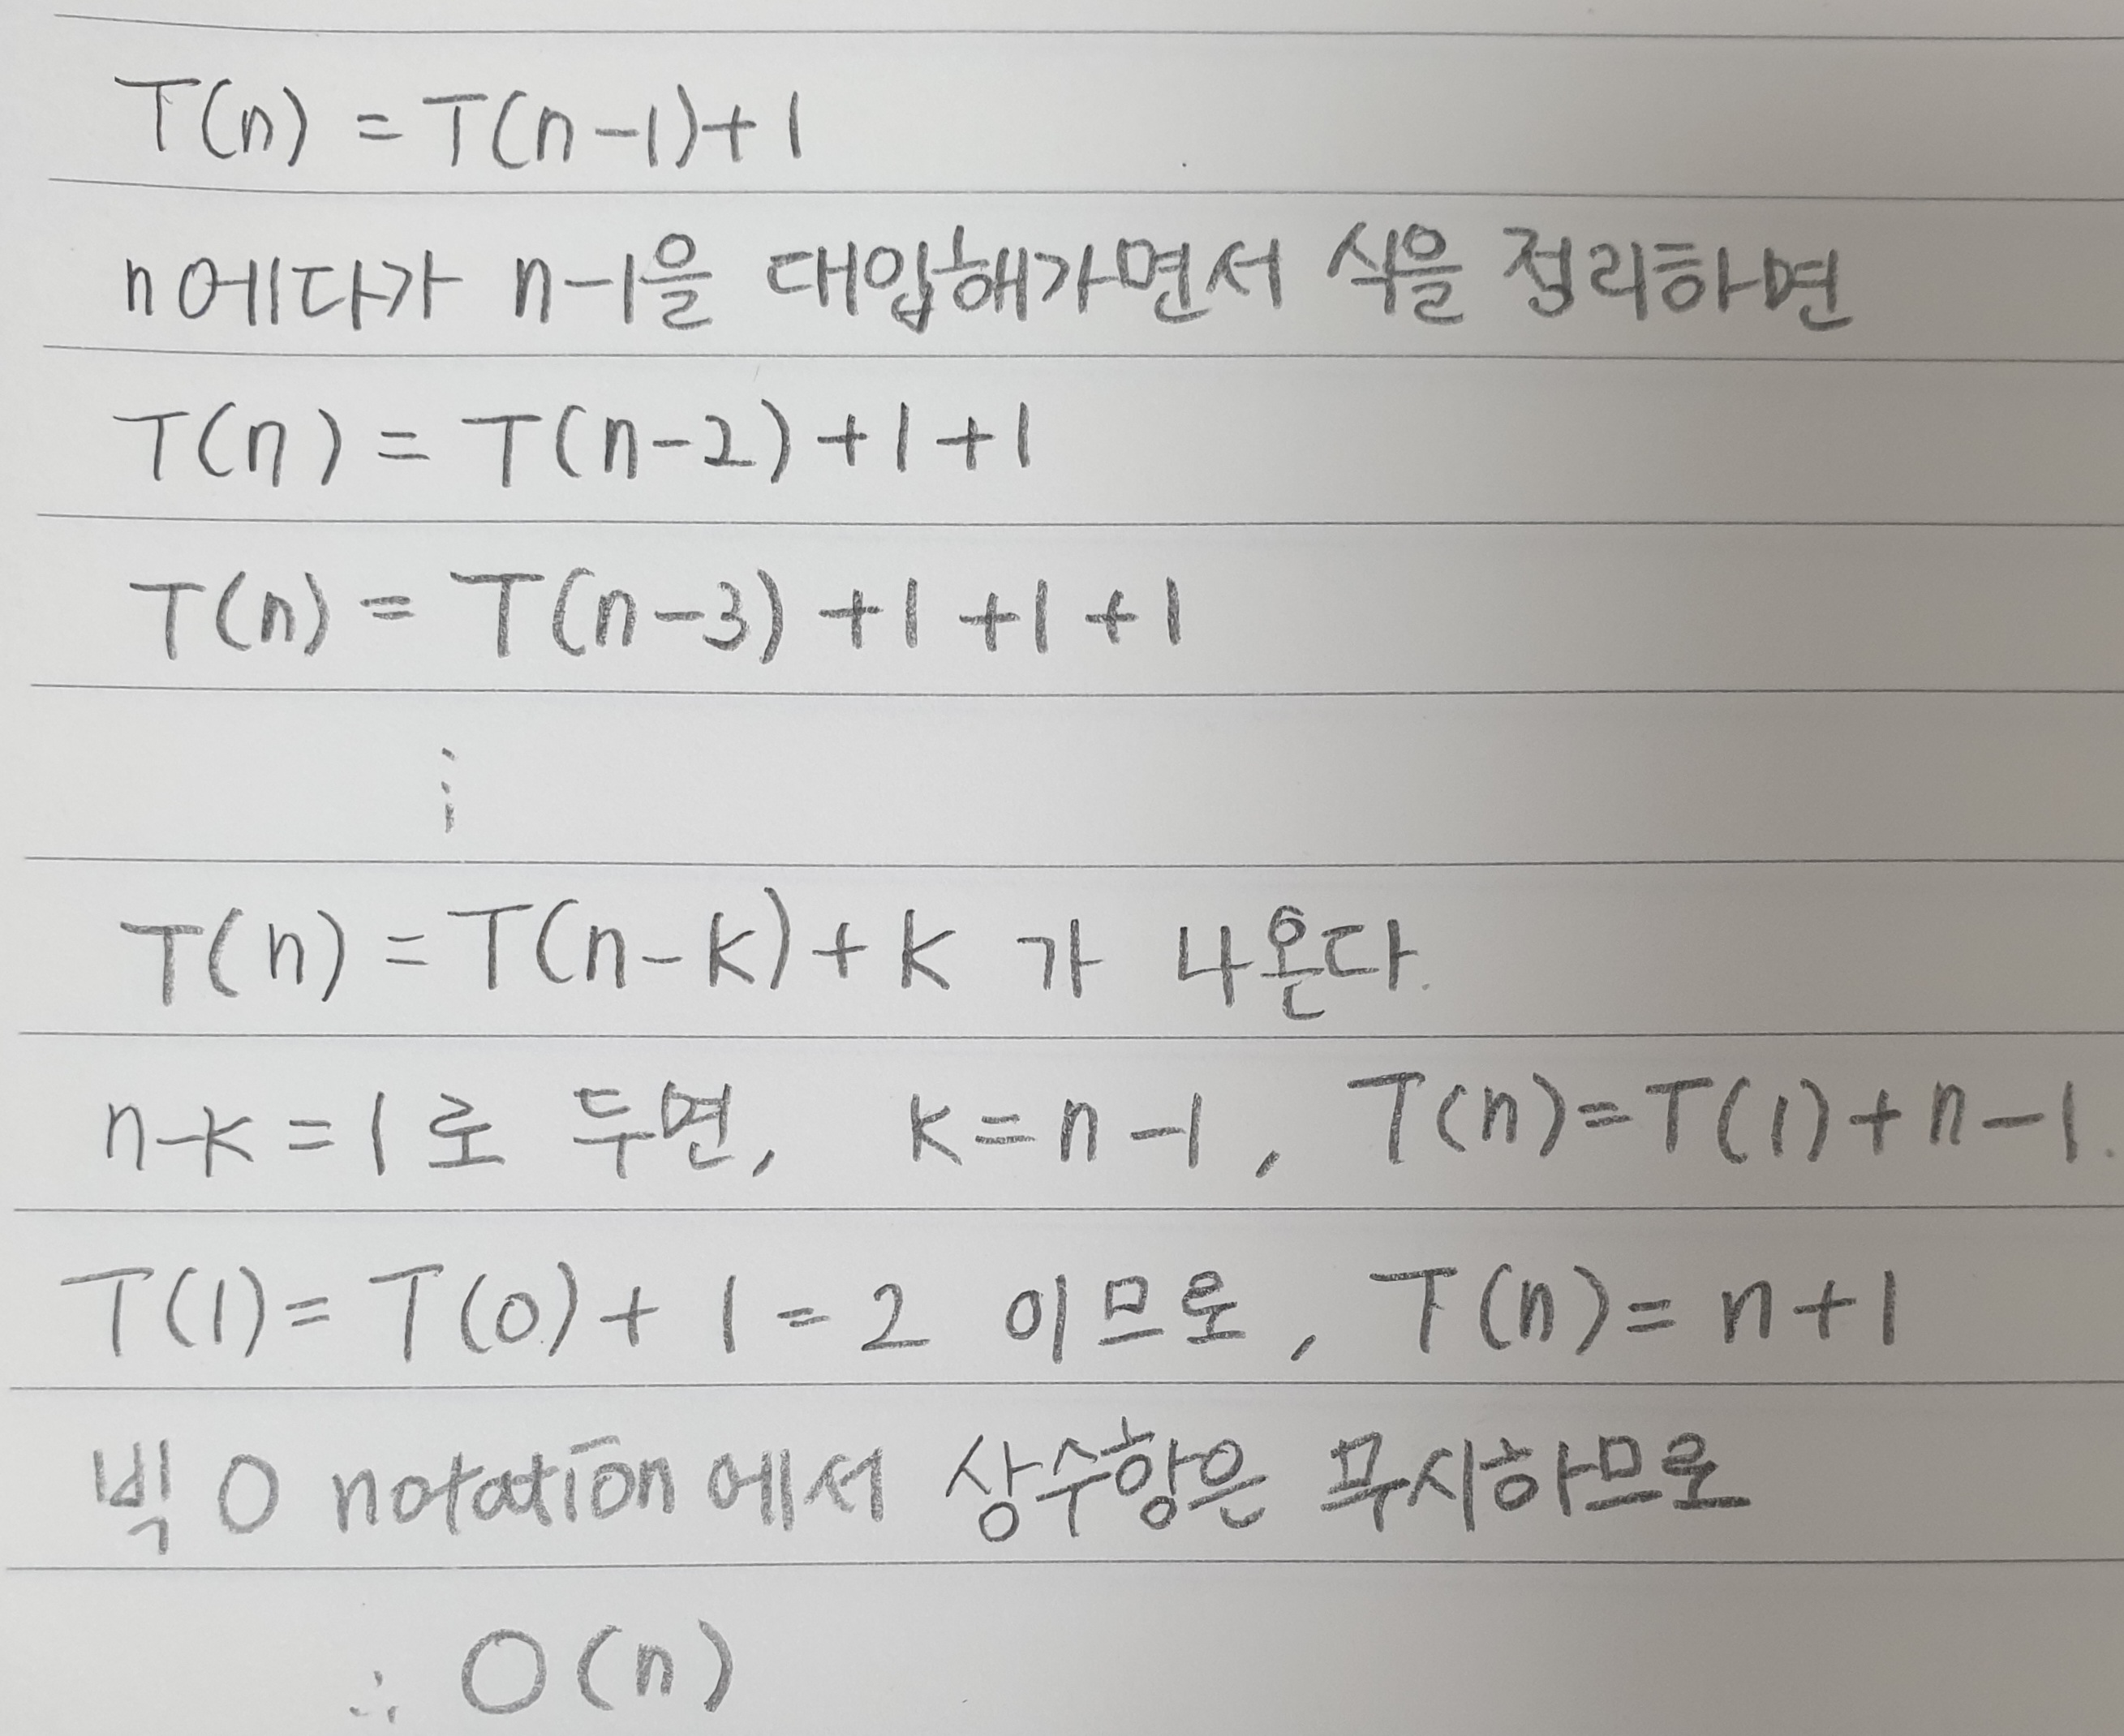 T(n) = T(n-1)+1
n에다가 n-1을 대입해가면서 식을 정리하면
T(n) = T(n-2)+1+1
T(n) = T(n-3)+1+1+1
⋮
T(n) = T(n-k)+k 가 나온다.
n-k=1로 두면, k=n-1, T(n)=T(1)+n-1.
T(1)=T(0)+1=2 이므로, T(n)=n+1
빅 O notation에서 상수항은 무시하므로
∴ O(n)